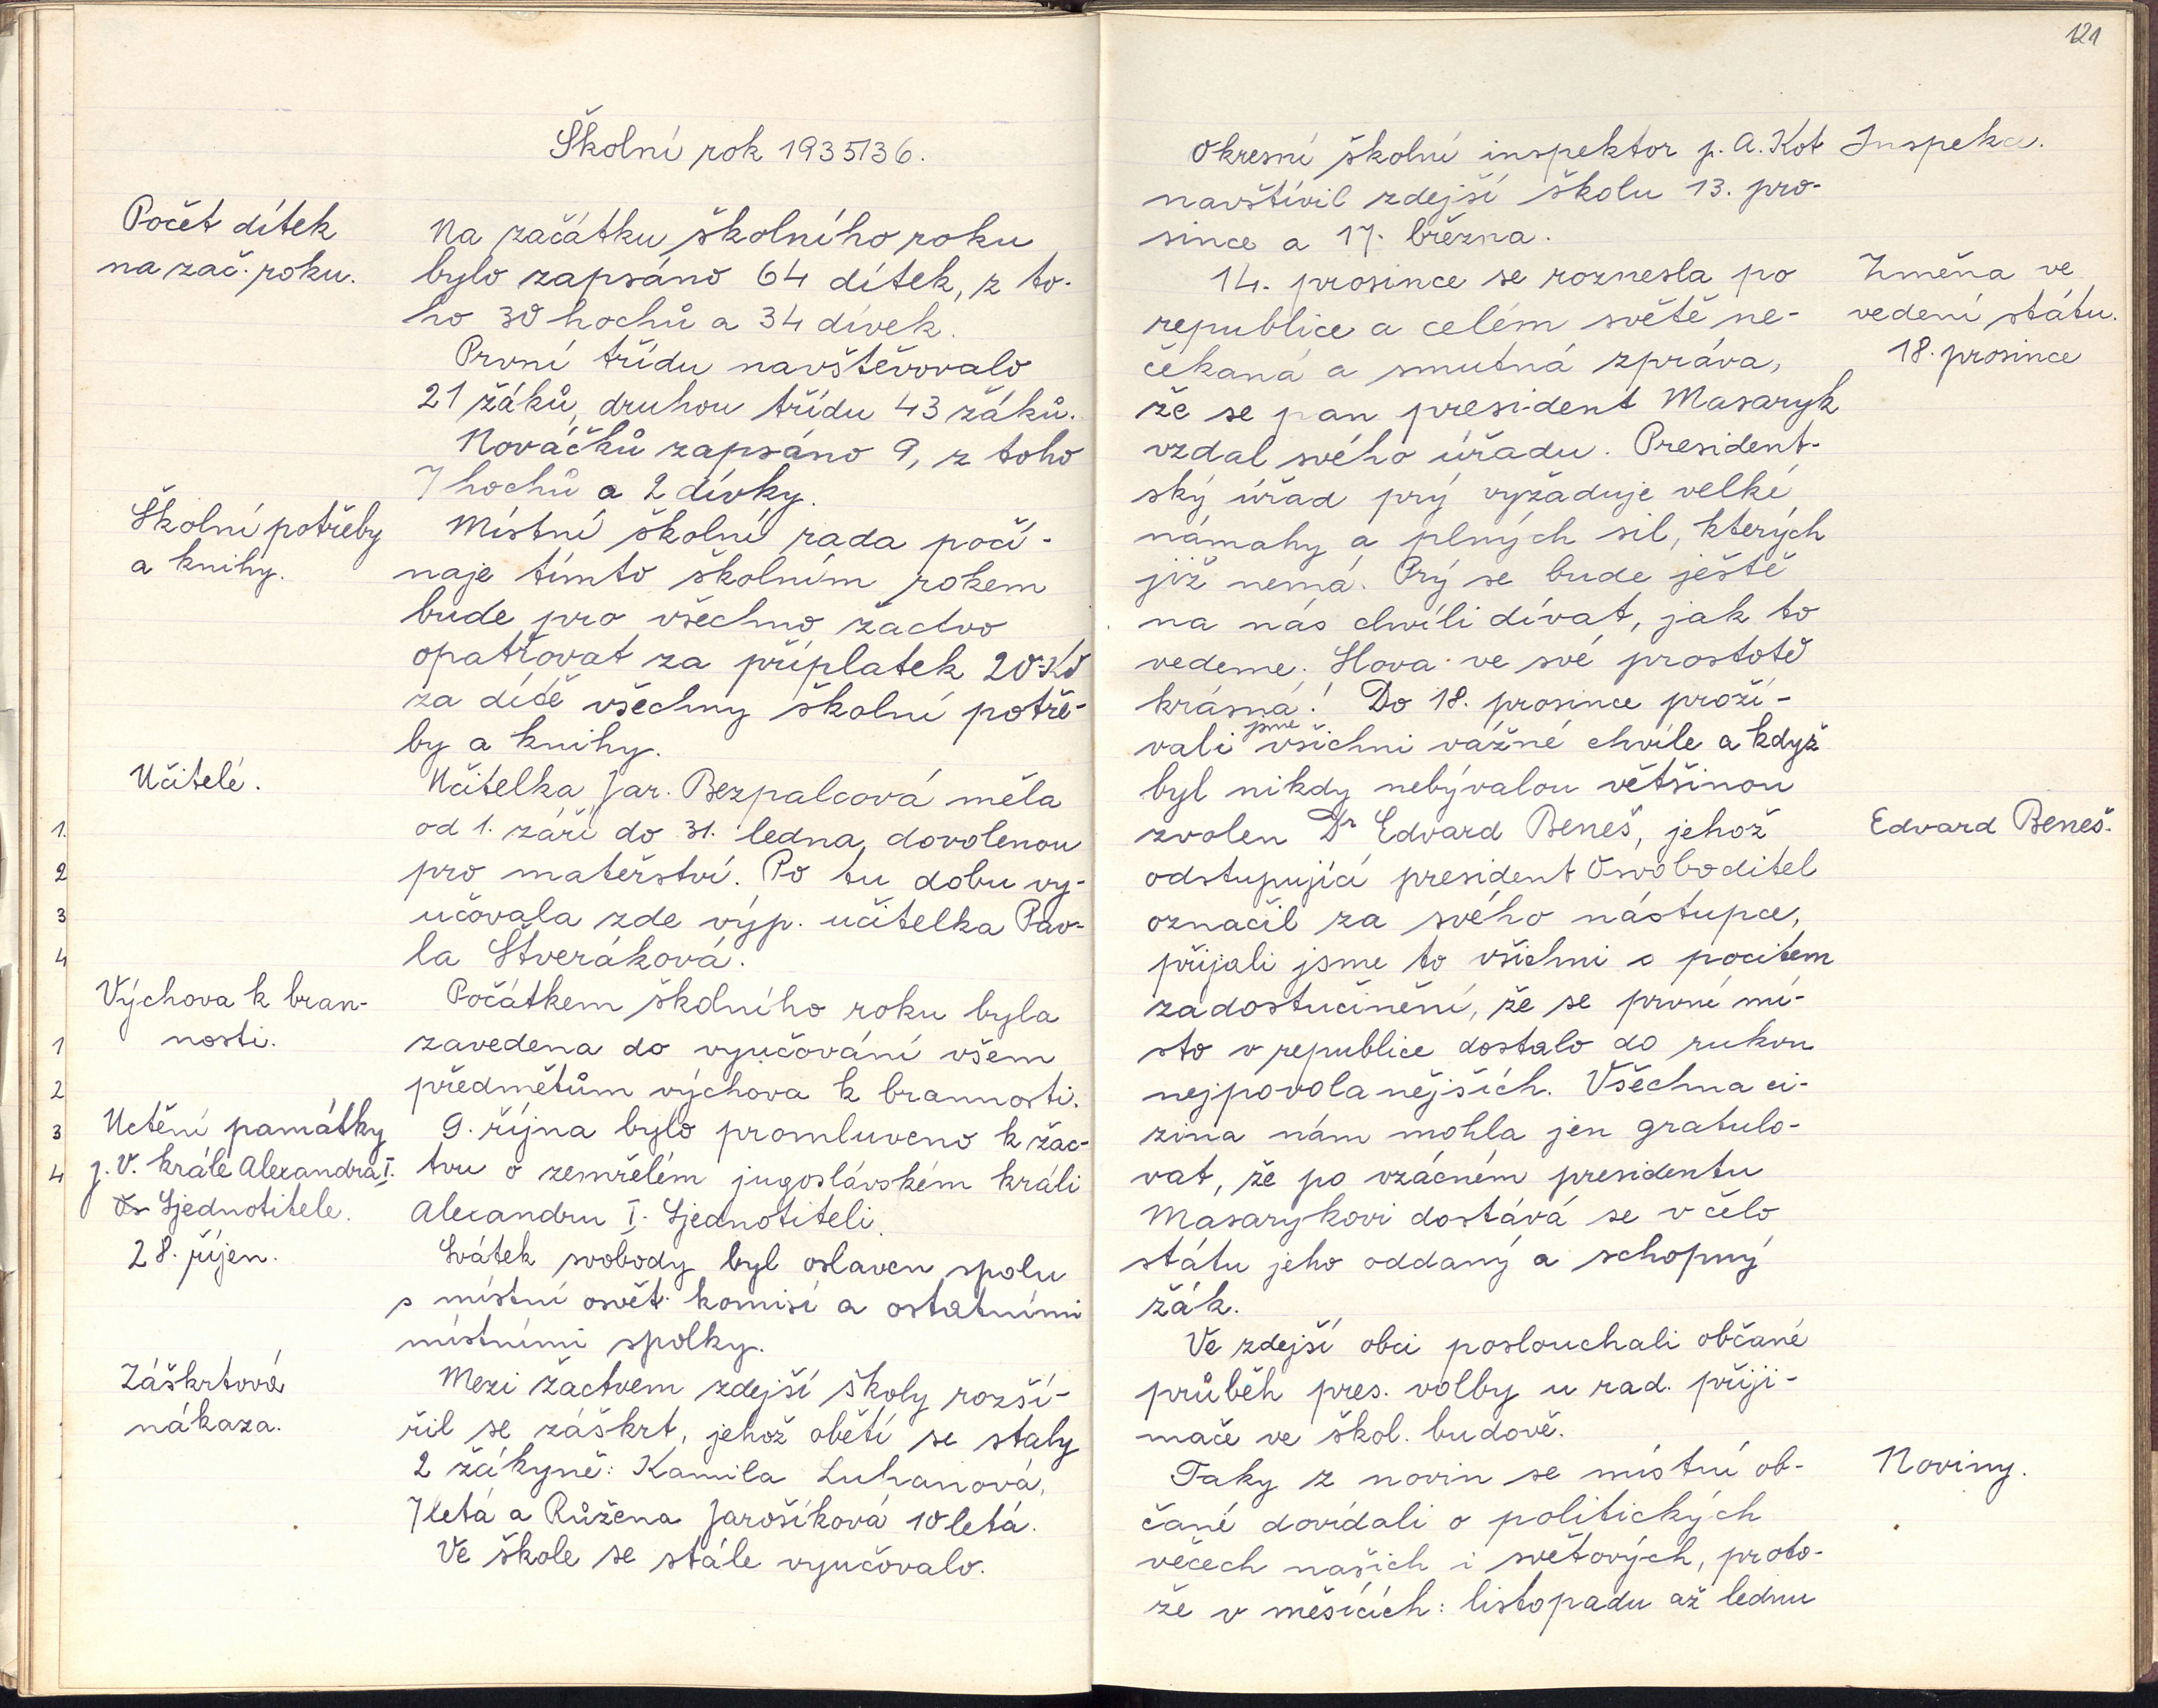 Školní rok 1935/36.
Počet dítek
na zač. roku.
Na začátku školního roku
bylo zapsáno 64 dítek, z to-
ho 30 hochů a 34 dívek.
První třídu navštěvovalo
21 žáků, druhou třídu 43 žáků.
Nováčků zapsáno 9, z toho
7 hochů a 2 dívky.
Školní potřeby
a knihy.
Místní školní rada počí-
naje tímto školním rokem
bude pro všechno žactvo
opatřovat za příplatek 20 Kč
za dítě všechny školní potře-
by a knihy.
Učitelé.
Učitelka Jar. Bezpalcová měla
od 1. září do 31. ledna dovolenou
pro mateřství. Po tu dobu vy-
učovala zde výp. učitelka Pav-
la Štveráková.
1.
2
3
4
Výchova k bran-
nosti.
Počátkem školního roku byla
zavedena do vyučování všem
předmětům výchova k brannosti.
1
2
3
4
Uctění památky
J. V. krále Alexandra I.
Sjednotitele.
9. října bylo promluveno k žac-
tvu o zemřelém jugoslávském králi
Alexandru I. Sjednotiteli.
28. říjen.
Svátek svobody byl oslaven spolu
s místní osvět. komisí a ostatními
místními spolky.
Záškrtová
nákaza.
Mezi žactvem zdejší školy rozší-
řil se záškrt, jehož obětí se staly
2 žákyně: Kamila Luhanová,
7letá a Růžena Jarošíková 10letá.
Ve škole se stále vyučovalo.
121
Okresní školní inspektor p. A. Kot
navštívil zdejší školu 13. pro-
since a 17. března.
Inspekce.
14. prosince se roznesla po
republice a celém světě ne-
čekaná a smutná zpráva,
že se pan president Masaryk
vzdal svého úřadu. President-
ský úřad prý vyžaduje velké
námahy a plných sil, kterých
již nemá. Prý se bude ještě
na nás chvíli dívat, jak to
vedeme. Slova ve své prostotě
krásná! Do 18. prosince proží-
vali jsme všichni vážné chvíle a když
byl nikdy nebývalou většinou
zvolen Dr Edvard Beneš, jehož
odstupující president Osvoboditel
označil za svého nástupce,
přijali jsme to všichni s pocitem
zadostučinění, že se první mí-
sto v republice dostalo do rukou
nejpovolanějších. Všechna ci-
zina nám mohla jen gratulo-
vat, že po vzácném presidentu
Masarykovi dostává se v čelo
státu jeho oddaný a schopný
žák.
Změna ve
vedení státu.
18. prosince
Edvard Beneš.
Ve zdejší obci poslouchali občané
průběh pres. volby u rad. přiji-
mače ve škol. budově.
Taky z novin se místní ob-
čané dovídali o politických
věcech našich i světových, proto-
že v měsících: listopadu až lednu
Noviny.